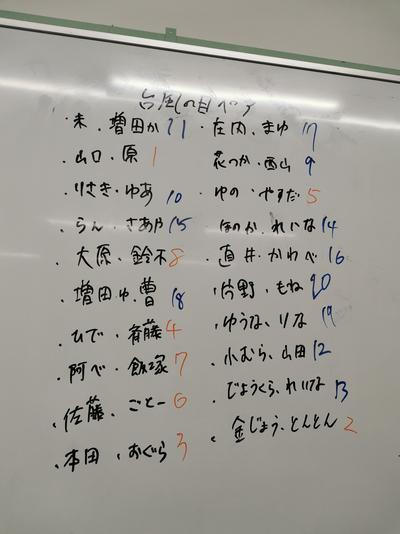 台風の目ペア
・未・増田か 11
・山口・原 1
・りさき・ゆあ 10
・らん・さあや 15
・大原・鈴木 8
・増田ゆ・曹 18
・ひで・斉藤 4
・阿べ・飯塚 7
・佐藤・ごとー 6
・本田・おぐら 3
・庄内・まゆ 17
花つか・西山 9
・ゆの・やすだ 5
・ほのか・れいな 14
・直井・かわべ 16
・片野・もね 20
・ゆうな・りな 19
・小むら・山田 12
・じょうくら・れいな 13
・金じょう・とんとん 2